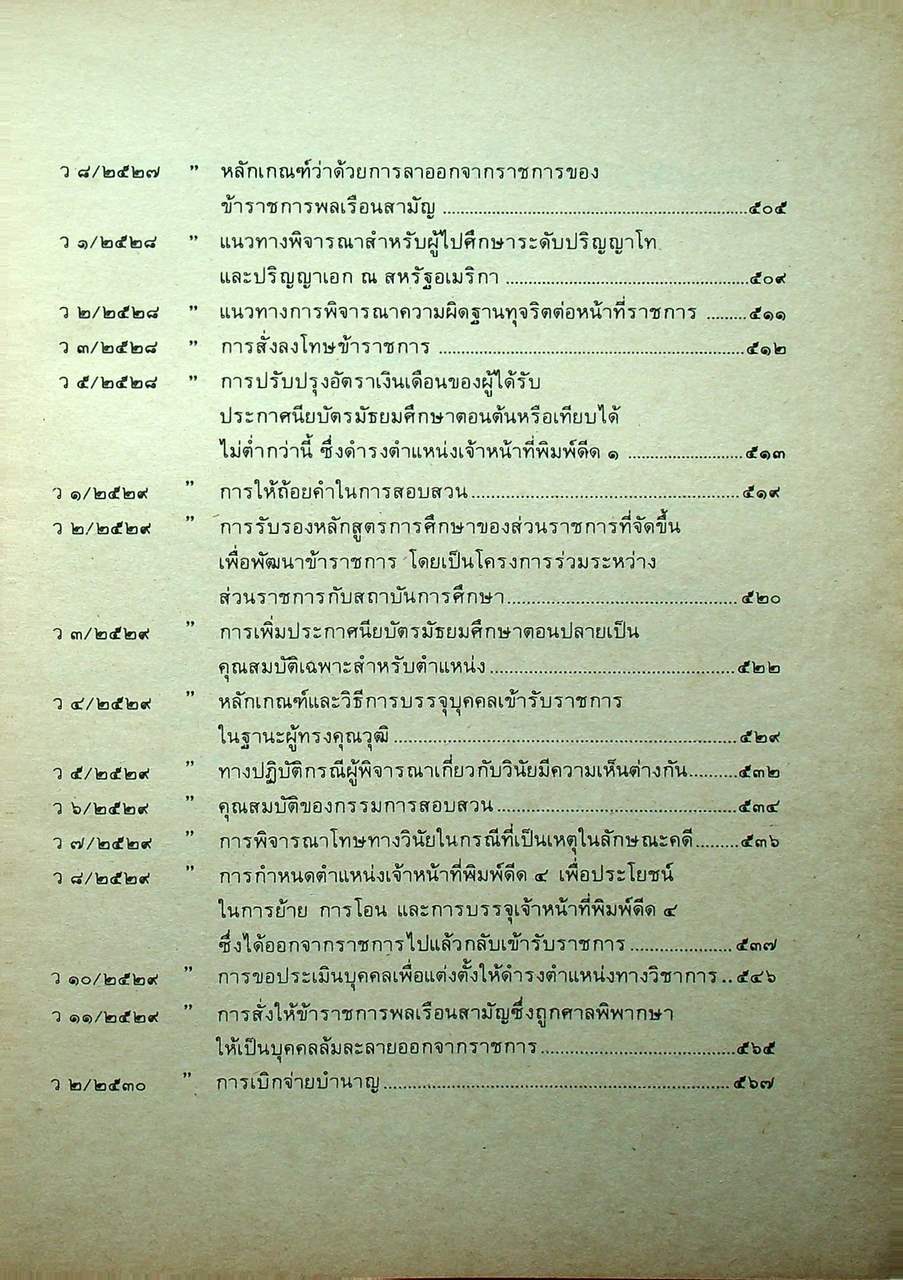 ว ๘/๒๕๒๗ ” หลักเกณฑ์ว่าด้วยการลาออกจากราชการของ
ข้าราชการพลเรือนสามัญ ........................................................๕๐๕
ว ๑/๒๕๒๘ ” แนวทางพิจารณาสำหรับผู้ไปศึกษาระดับปริญญาโท
และปริญญาเอก ณ สหรัฐอเมริกา .............................................๕๐๙
ว ๒/๒๕๒๘ ” แนวทางการพิจารณาความผิดฐานทุจริตต่อหน้าที่ราชการ .........๕๑๑
ว ๓/๒๕๒๘ ” การสั่งลงโทษข้าราชการ ........................................................๕๑๒
ว ๕/๒๕๒๘ ” การปรับปรุงอัตราเงินเดือนของผู้ได้รับ
ประกาศนียบัตรมัธยมศึกษาตอนต้นหรือเทียบได้
ไม่ต่ำกว่านี้ ซึ่งดำรงตำแหน่งเจ้าหน้าที่พิมพ์ดีด ๑ ......................๕๑๓
ว ๑/๒๕๒๙ ” การให้ถ้อยคำในการสอบสวน..................................................๕๑๙
ว ๒/๒๕๒๙ ” การรับรองหลักสูตรการศึกษาของส่วนราชการที่จัดขึ้น
เพื่อพัฒนาข้าราชการ โดยเป็นโครงการร่วมระหว่าง
ส่วนราชการกับสถาบันการศึกษา...........................................๕๒๐
ว ๓/๒๕๒๙ ” การเพิ่มประกาศนียบัตรมัธยมศึกษาตอนปลายเป็น
คุณสมบัติเฉพาะสำหรับตำแหน่ง..............................................๕๒๒
ว ๔/๒๕๒๙ ” หลักเกณฑ์และวิธีการบรรจุบุคคลเข้ารับราชการ
ในฐานะผู้ทรงคุณวุฒิ ...............................................................๕๒๙
ว ๕/๒๕๒๙ ” ทางปฏิบัติกรณีผู้พิจารณาเกี่ยวกับวินัยมีความเห็นต่างกัน.........๕๓๒
ว ๖/๒๕๒๙ ” คุณสมบัติของกรรมการสอบสวน.............................................๕๓๔
ว ๗/๒๕๒๙ ” การพิจารณาโทษทางวินัยในกรณีที่เป็นเหตุในลักษณะคดี........๕๓๖
ว ๘/๒๕๒๙ ” การกำหนดตำแหน่งเจ้าหน้าที่พิมพ์ดีด ๔ เพื่อประโยชน์
ในการย้าย การโอน และการบรรจุเจ้าหน้าที่พิมพ์ดีด ๔
ซึ่งได้ออกจากราชการไปแล้วกลับเข้ารับราชการ...................๕๓๗
ว ๑๐/๒๕๒๙ ” การขอประเมินบุคคลเพื่อแต่งตั้งให้ดำรงตำแหน่งทางวิชาการ..๕๔๖
ว ๑๑/๒๕๒๙ ” การสั่งให้ข้าราชการพลเรือนสามัญซึ่งถูกศาลพิพากษา
ให้เป็นบุคคลล้มละลายออกจากราชการ....................................๕๖๕
ว ๒/๒๕๓๐ ” การเบิกจ่ายบำนาญ................................................................๕๖๗